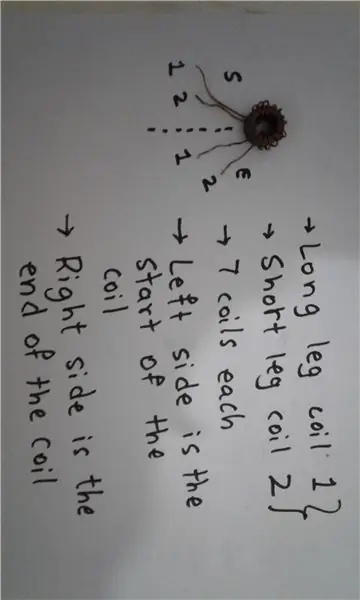 S E
1 2 1 2
→ Long leg coil 1 }
→ Short leg coil 2 }
→ 7 coils each
→ Left side is the
start of the
coil
→ Right side is the
end of the coil